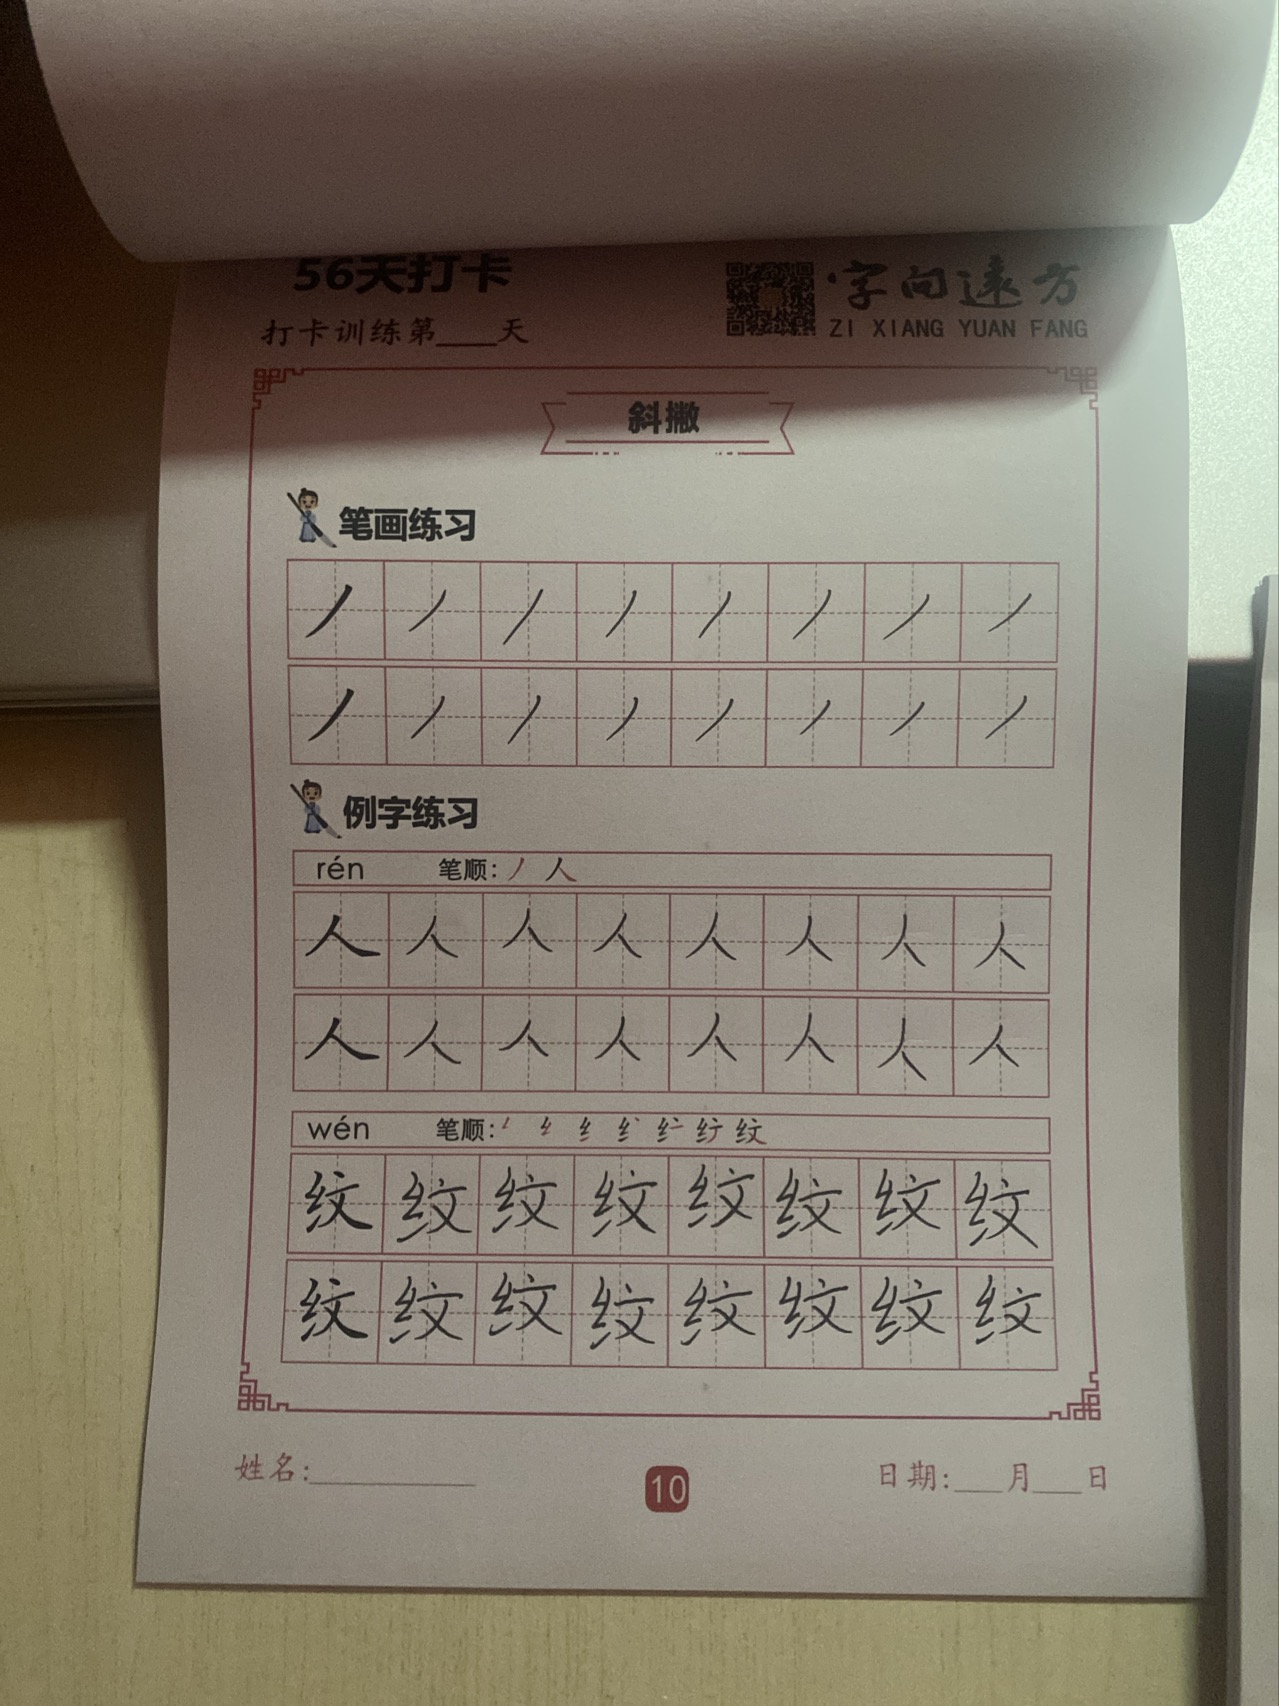 56天打卡
字向远方
打卡训练第____天
ZI XIANG YUAN FANG
斜撇
笔画练习
丿 丿 丿 丿 丿 丿 丿 丿
丿 丿 丿 丿 丿 丿 丿 丿
例字练习
rén 笔顺: 丿 人
人 人 人 人 人 人 人 人
人 人 人 人 人 人 人 人
wén 笔顺: 纹
纹 纹 纹 纹 纹 纹 纹 纹
纹 纹 纹 纹 纹 纹 纹 纹
姓名:__________
10
日期:___月___日